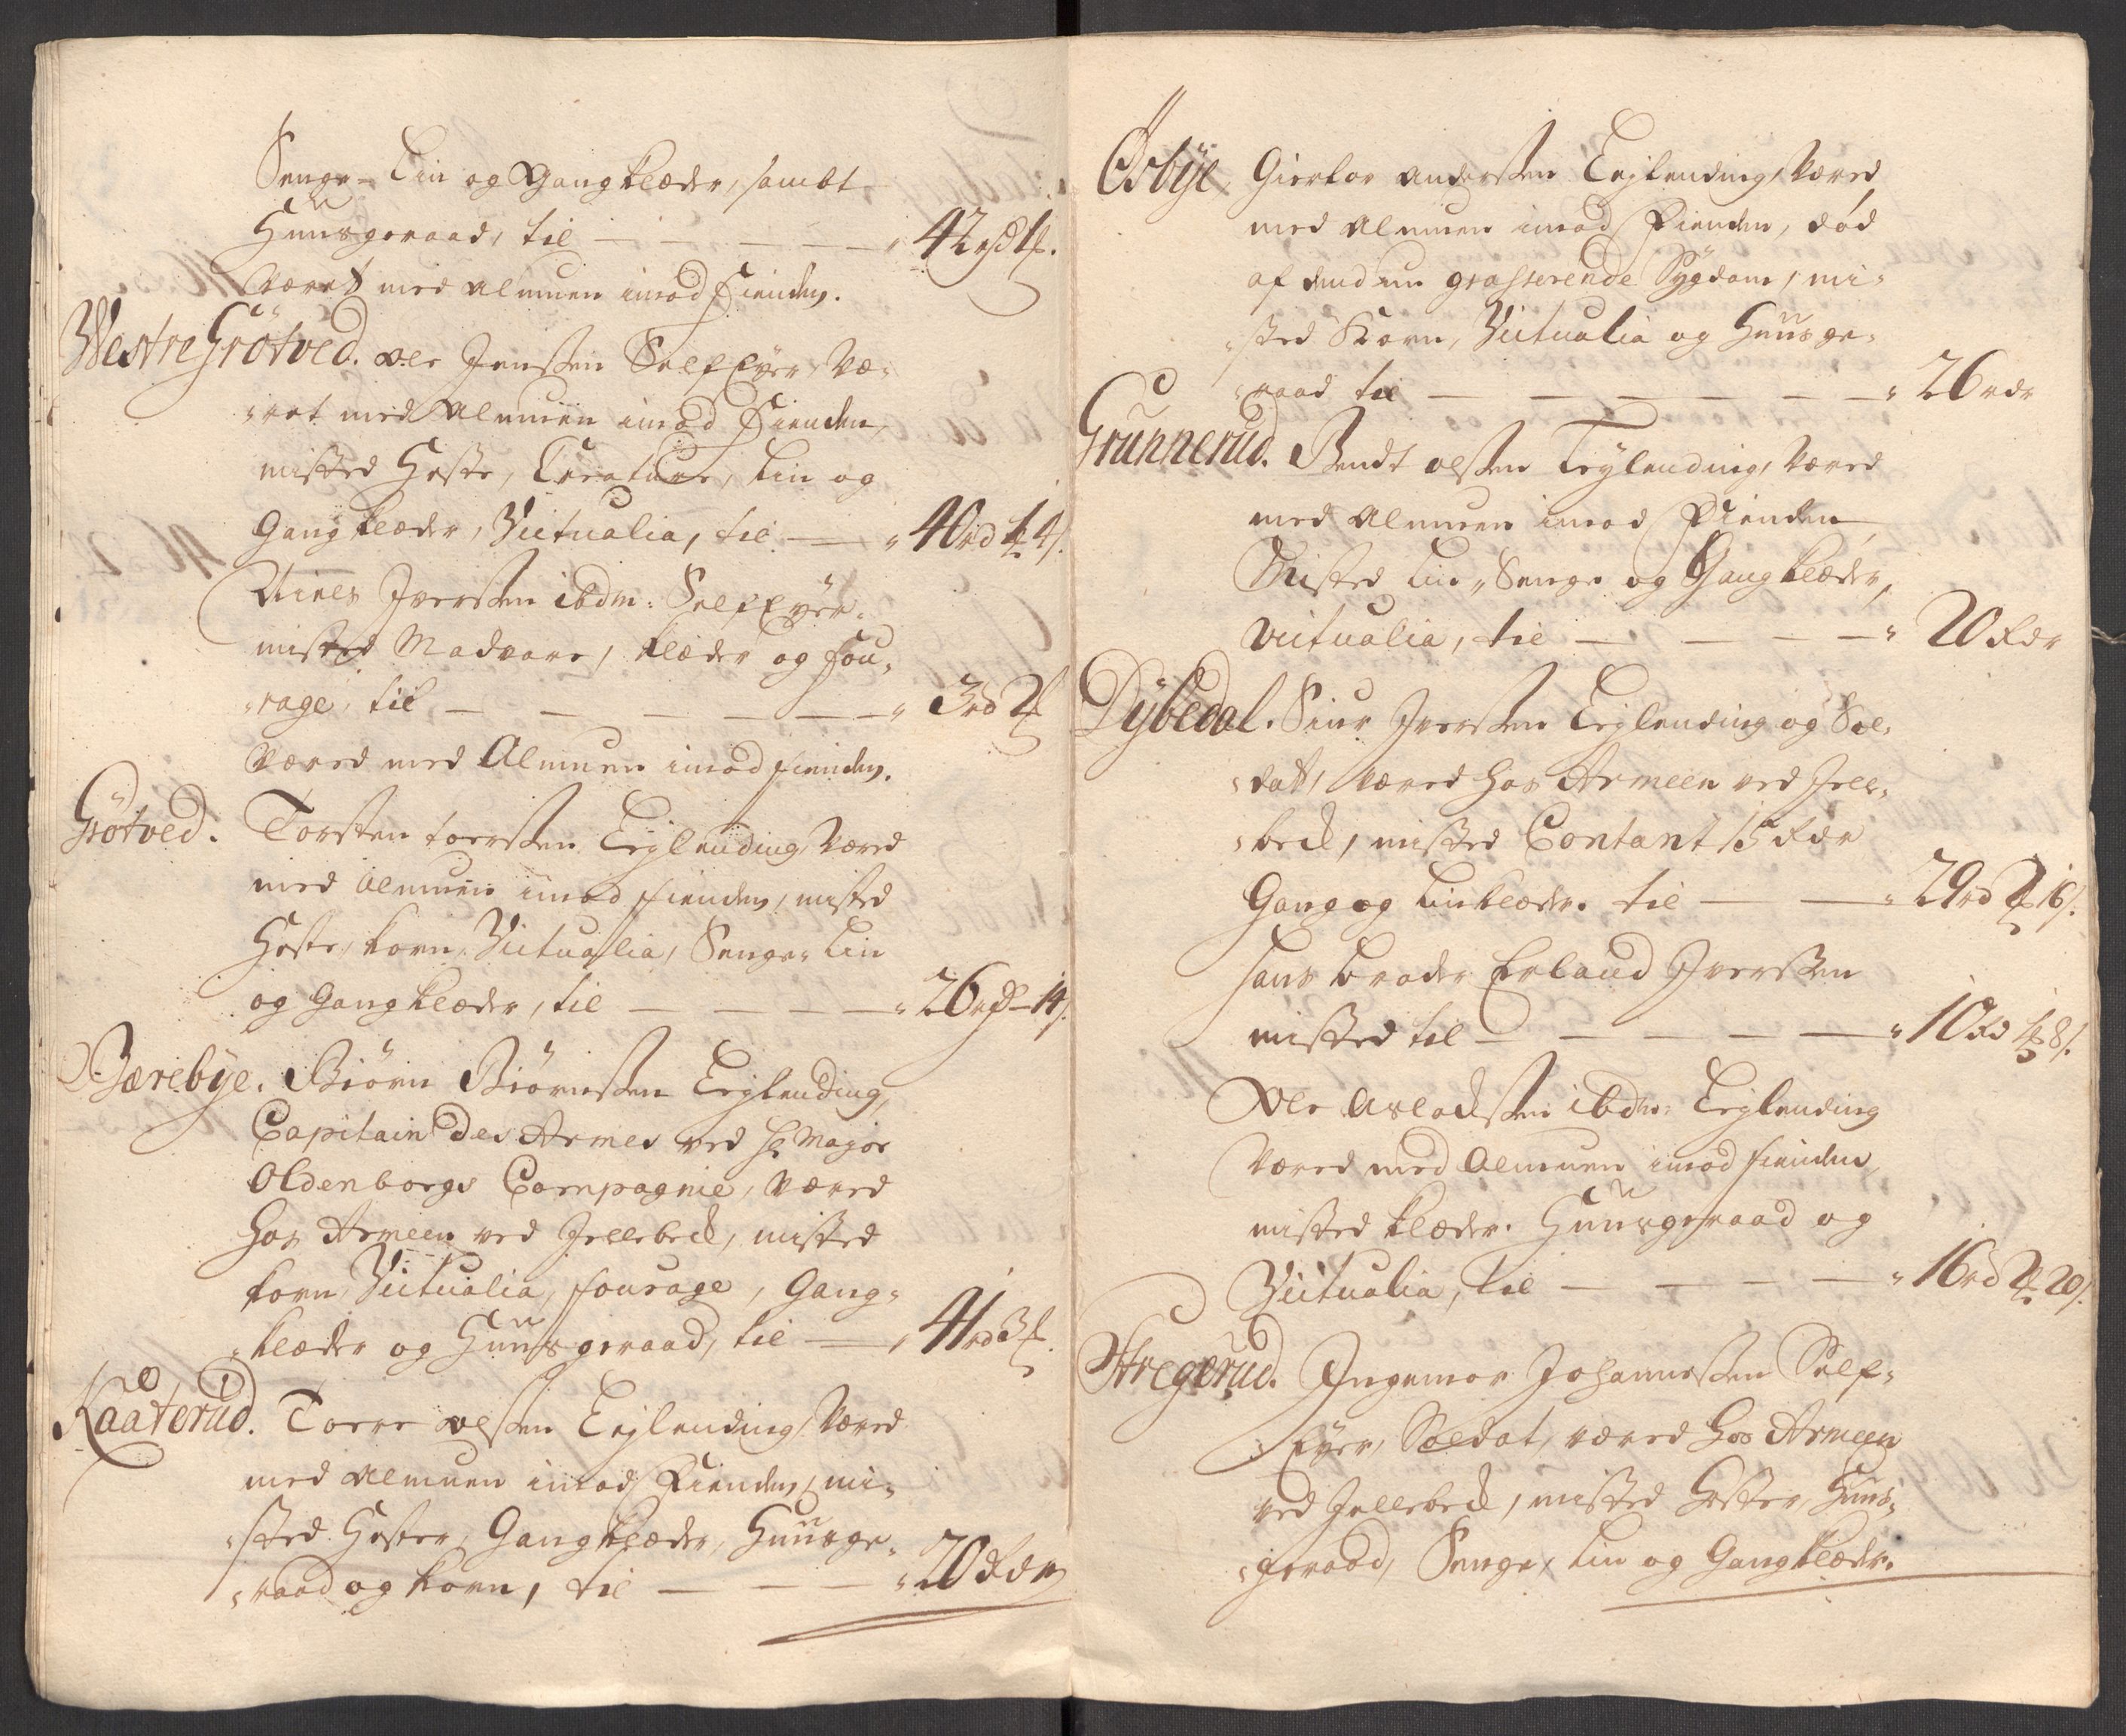 Senge- Lin og Gangklæder, sambt
Huusgeraad, til — — — — — " 42 rd 1 f.
Været med Almuen imod fienden.
Westre Grötved. Ole Jenssen Self Eyer, Væ-
ret med Almuen imod fienden,
misted Heste, Creature, Lin og
Gangklæder, Victualia, til — " 40 rd 1 f 4 s.
Iversen ibdm: Self Eyer,
misted Madvare, klæder og fou-
rage, til — — — — — — " 3 rd 2 f
Væred med Almuen imod fienden.
Grötved. Torsten toersen Leylending, Væred
med Almuen imod fienden, misted
Heste, korn, Victualia, Senge- Lin
og Gangklæder, til — — — — " 26 rd - 14 s.
Bærebye. Biörn Biörnsen Leylending,
Capitain des Armes ved Hr Major
Oldenborgs Compagnie, Væred
hos Armeen ved Jellebeck, misted
korn, Victualia, fourage, Gang-
klæder og Huusgeraad, til — " 41 rd 3 f.
Kaaterud. Toere Olsen Leylending, Væred
med Almuen imod Fienden, mi-
sted Hester, Gangklæder, Huusge-
raad og korn, til — — — " 20 Rdr
Ösbye, Andersen Leylending, Væred
med Almuen imod Fienden, död
af dend nu grasserende Sygdom, mi-
sted Korn, Victualia og Huusge-
raad til — — — — — — " 26 rdr
Grunnerud. Bendt Olsen Leylending, Væred
med Almuen imod Fienden
Misted Lin, Senge og Gangklæder,
Victualia, til — — — — " 20 Rdr
Dybedal. Siur Iversen Leylending og Sol-
dat, Væred hos Armeen ved Jelle-
beck, misted Contant 15 Rdr
Gang og Linklæder. til — — " 29 rd 2 f 16 s.
hans broder Erland Iversen
misted til — — — — — " 10 Rd 1 f 8 s.
Ole Aslacksen ibdm: Leylending
Væred med Almuen imod fienden,
misted klæder. Huusgeraad og
Victualia, til — — — — " 16 rd 2 f 20 s.
Stregerud. Ingemor Johannesen Self-
Eyer, Soldat, væred hos Armeen
ved Jellebeck, misted Hester, Huus-
geraad, Senge, Lin og Gangklæder.